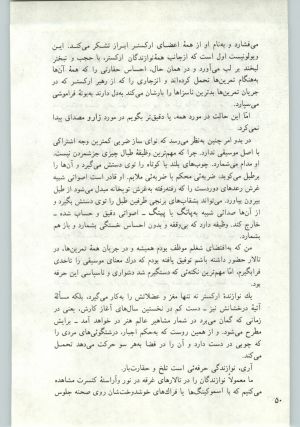 می‌فشارد و به‌نام او از همهٔ اعضای ارکستر ابراز تشکر می‌کند. این
ویولونیست اول است که ازجانب همهٔ نوازندگان ارکستر، با حجب و تبختر
لبخند بر لب می‌آورد و در همان حال، احساس حقارتی را که همهٔ آن‌ها
به‌هنگام تمرین‌ها تحمل کرده‌اند و انزجاری را که از رهبر ارکستر که در
جریان تمرین‌ها بدترین ناسزاها را بارشان می‌کند به‌دل دارند به‌بوتهٔ فراموشی
می‌سپارد.
اما این حالت در مورد همه، یا دقیق‌تر بگویم در مورد زارو مصداق پیدا
نمی‌کرد.
در بدو امر چنین به‌نظر می‌رسد که نوای ساز ضربی کمترین وجه اشتراکی
با اصل موسیقی ندارد. چرا که مهم‌ترین وظیفهٔ طبال چیزی جزشمردن نیست.
او مدام می‌شمارد. چوب‌های بلند یا کوتاه را توی دستش می‌گیرد و آن‌ها را
برطبل می‌کوبد، ضربه‌ئی محکم یا ضربه‌ئی ملایم. او قادر است اصواتی شبیه
غرش رعدهای دوردست را که رفته‌رفته به‌غرش توپخانه مبدل می‌شود از طبل
بیرون بیاورد. می‌تواند بشقاب‌های برنجی طرفین طبل را توی دستش بگیرد و
از آن‌ها صدائی شبیه به‌پانگ یا پینگ ـ اصواتی دقیق و حساب شده ـ
خارج کند. وظیفه دارد که بی‌وقفه و بدون احساس خستگی بشمارد و باز هم
بشمارد.
من که به‌اقتضای شغلم موظف بودم همیشه و در جریان همهٔ تمرین‌ها، در
تالار حضور داشته باشم توفیق یافته بودم که درک معنای موسیقی را تاحدی
فرابگیرم. اما مهم‌ترین نکته‌ئی که دستگیرم شد دشواری و ناسپاسی این حرفه
بود.
یک نوازندهٔ ارکستر نه تنها مغز و عضلاتش را به‌کار می‌گیرد، بلکه مسألهٔ
آتیهٔ درخشانش نیز ـ دست کم در نخستین سال‌های آغاز کارش، یعنی در
زمانی که گمان می‌برد در شمار مشاهیر عالم هنر در خواهد آمد ـ برایش
مطرح می‌شود. و از همین روست که به‌حکم اجبار، درشتگوئی‌های مردی را
که چوبی در دست دارد و آن را در فضا به‌هر سو حرکت می‌دهد تحمل
می‌کند.
آری، نوازندگی حرفه‌ئی است تلخ و حقارت‌بار.
ما معمولا نوازندگان را در تالارهای غرقه در نور وآراستهٔ کنسرت مشاهده
می‌کنیم که با اسموکینگ‌ها یا فراک‌های خوشدوخت‌شان روی صحنه جلوس
۵۰